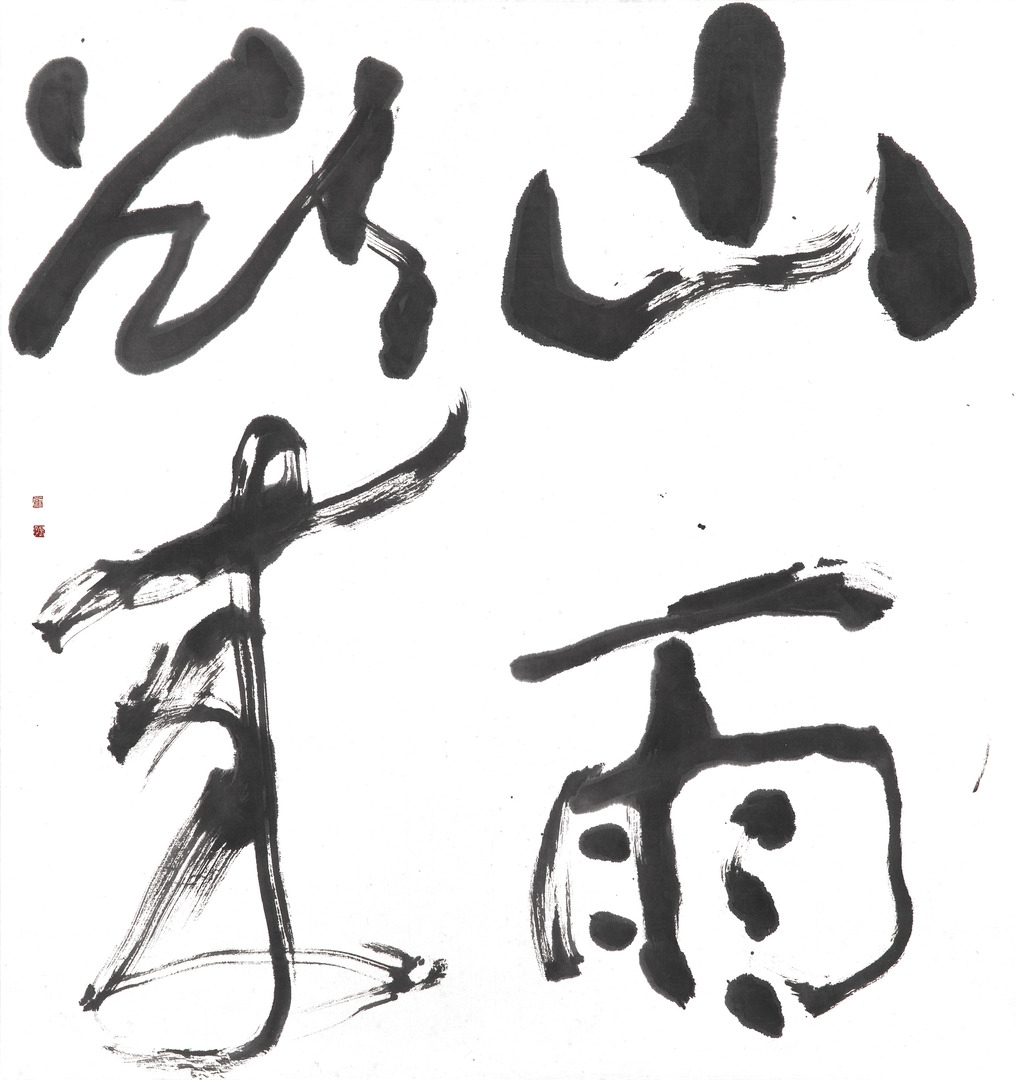 山雨
欲來